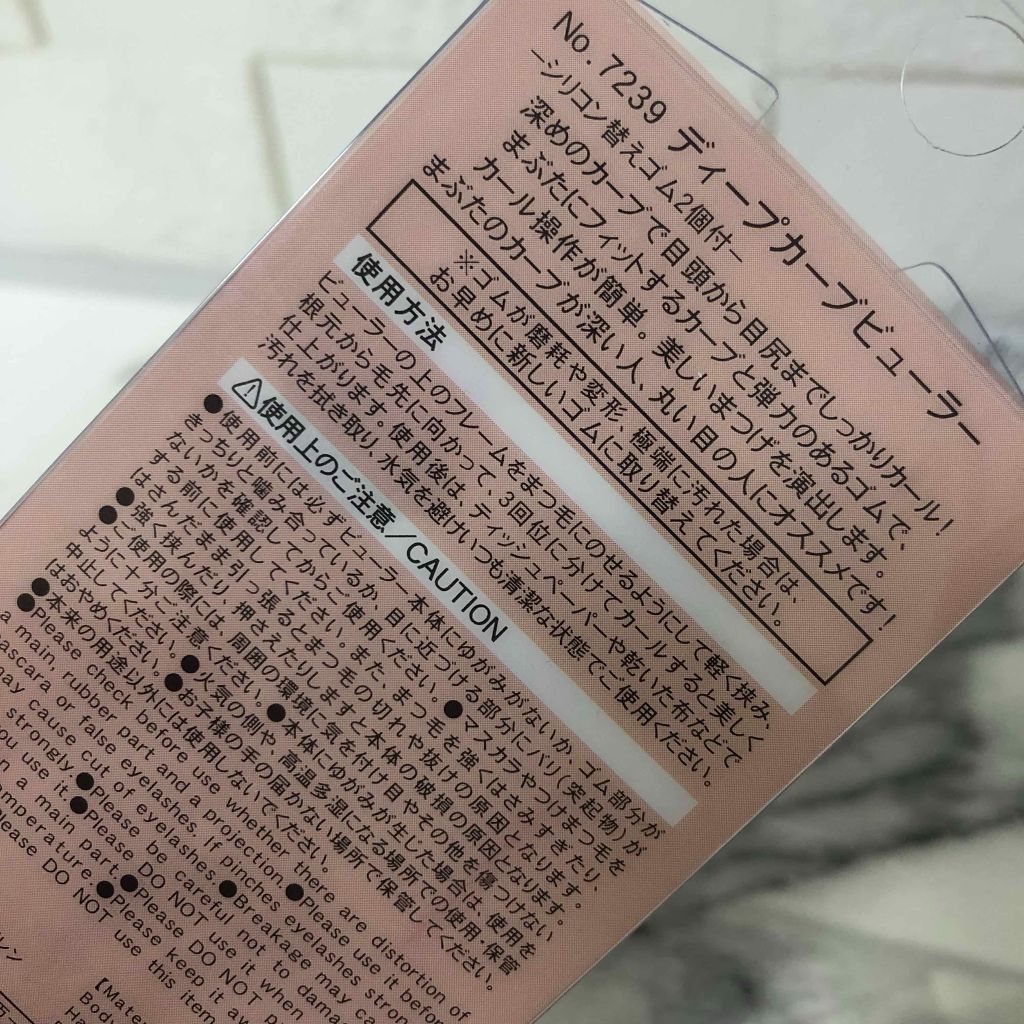 No.7239 ディープカーブビューラー
―シリコン替えゴム2個付―
深めのカーブで目頭から目尻までしっかりカール!
まぶたにフィットするカーブと弾力のあるゴムで、
カール操作が簡単。美しいまつげを演出します。
まぶたのカーブが深い人、丸い目の人にオススメです!
※ゴムが磨耗や変形、極端に汚れた場合は、
お早めに新しいゴムに取り替えてください。
使用方法
ビューラーの上のフレームをまつ毛にのせるようにして軽く挟み、
根元から毛先に向かって、3回位に分けてカールすると美しく
仕上がります。使用後は、ティッシュペーパーや乾いた布などで
汚れを拭き取り、水気を避けいつも清潔な状態でご使用ください。
⚠使用上のご注意/CAUTION
●使用前には必ずビューラー本体にゆがみがないか、ゴム部分が
きっちりと噛み合っているか、目に近づける部分にバリ(突起物)が
ないかを確認してからご使用ください。●マスカラやつけまつ毛を
する前に使用してください。また、まつ毛を強くはさみすぎたり、
はさんだまま引っ張るとまつ毛の切れや抜けの原因となります。
●強く挟んだり、押さえたりしますと本体の破損の原因となります。
●ご使用の際には、周囲の環境に気を付け目やその他を傷つけない
ように十分ご注意ください。●本体にゆがみが生じた場合は、使用を
中止してください。●火気の側や、高温多湿になる場所での使用・保管
はおやめください。●お子様の手の届かない場所で保管してください。
●本来の用途以外には使用しないでください。
●Please check before use whether there are distortion of
a main, rubber part and a projection.●Please use it before
mascara or false eyelashes.If pinches eyelashes stron
may cause cut of eyelashes.●Breakage may c
strongly.●Please be careful not to damag
you use it.●Please DO NOT use it when
n a main part.●Please DO NOT p
mperature.●Please keep it awa
lease DO NOT use this item
【Mate
Body
レン